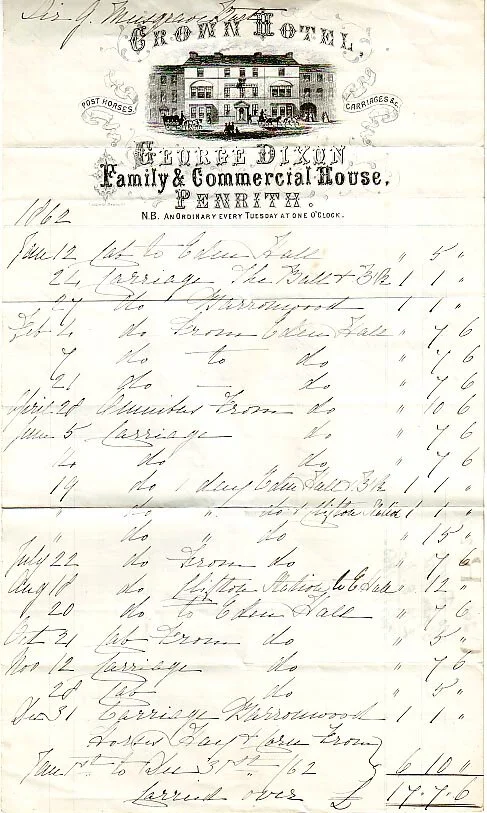 Sir G. Musgrave Bart
CROWN HOTEL,
POST HORSES,
CARRIAGES &c.
GEORGE DIXON
Family & Commercial House,
PENRITH.
N.B. AN ORDINARY EVERY TUESDAY AT ONE O'CLOCK.
1862
Jany 12 Cab to Eden Hall " 5 "
24 Carriage The Ball & 1 1 "
27 do Barronwood 1 1 "
Feb 4 do From Eden Hall " 7 6
7 do to do " 7 6
21 do — do " 7 6
April 28 Omnibus From do " 10 6
June 5 Carriage do " 7 6
14 do do " 7 6
19 do 1 day Eden Hall & 1 1 "
" do " do & Clifton 1 1 "
do " do " 15 "
July 22 do From do " 7 6
Aug 18 do Clifton Station to E Hall " 12 "
" 20 do to Eden Hall " 7 6
Oct 31 Cab From do " 5 "
Nov 12 Carriage do " 7 6
28 Cab do " 5 "
Dec 31 Carriage Barronwood 1 1 "
Horses Hay & Corn From
Jany 1st to Dec 31st /62 6 10 "
Carried over £ 17 . 7 . 6